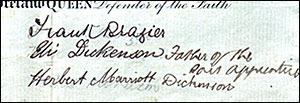 Ireland QUEEN Defender of the Faith
Frank Brazier
Eli Dickenson Father of the
said Apprentice
Herbert Marriott Dickenson